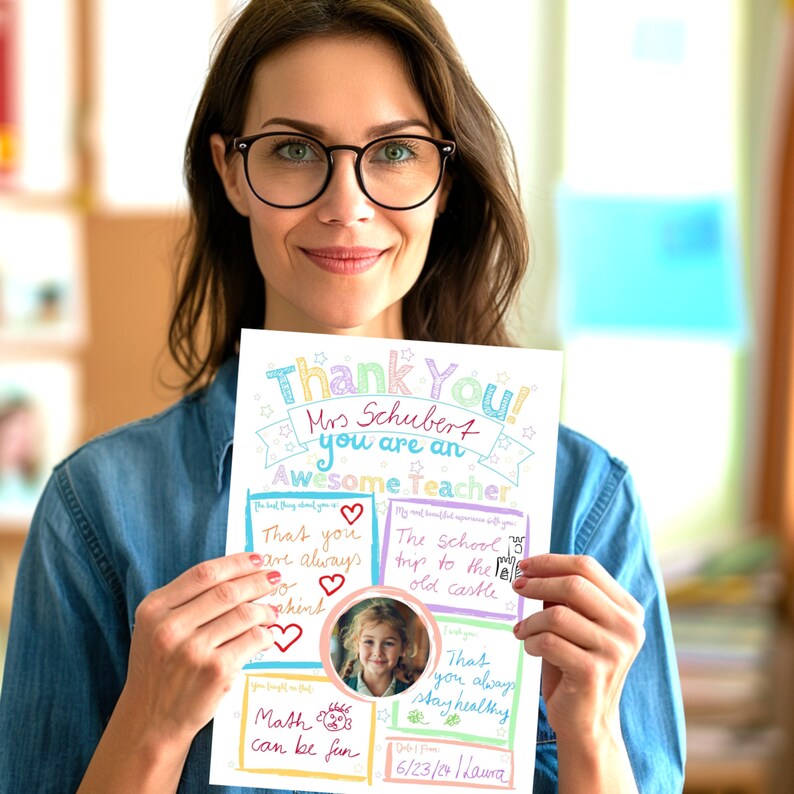 Thank You!
Mrs Schubert
you are an
Awesome Teacher
The best thing about you is:
That you
are always
so
patient
My most beautiful experience with you:
The school
trip to the
old castle
I wish you:
That
you always
stay healthy
You taught me that:
Math
can be fun
Date | From:
6/23/24 | Laura